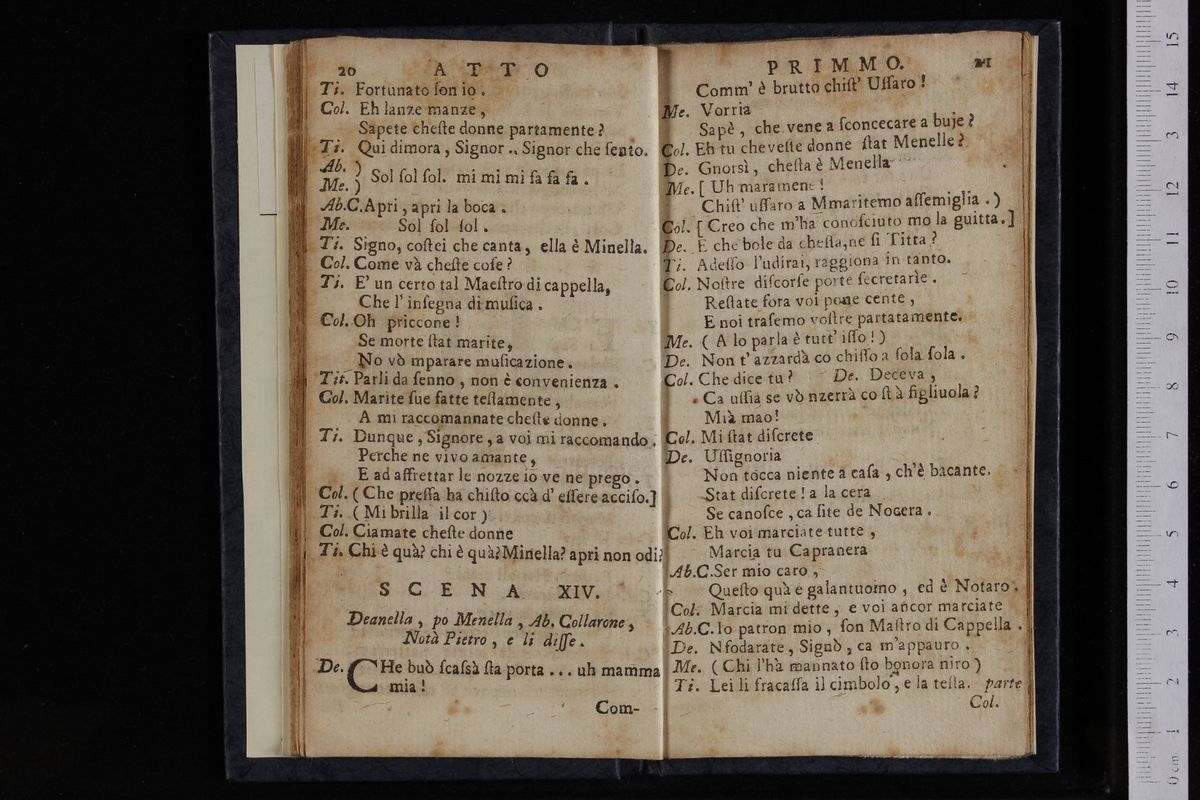 20 A T T O
Ti. Fortunato ſon io .
Col. Eh lanze manze ,
Sapete cheſte donne partamente ?
Ti. Qui dimora , Signor .. Signor che ſento.
Ab. )
Me. ) Sol ſol ſol. mi mi mi fa fa fa .
Ab.C. Apri , apri la boca .
Me. Sol ſol ſol .
Ti. Signo, coſtei che canta, ella è Minella.
Col. Come và cheſte coſe ?
Ti. E' un certo tal Maeſtro di cappella,
Che l' inſegna di muſica .
Col. Oh priccone !
Se morte ſtat marite,
No vò mparare muſicazione .
Tit. Parli da ſenno , non è convenienza .
Col. Marite ſue fatte teſtamente ,
A mi raccomannate cheſte donne .
Ti. Dunque , Signore , a voi mi raccomando .
Perche ne vivo amante ,
E ad affrettar le nozze io ve ne prego .
Col. ( Che preſſa ha chiſto ccà d' eſſere acciſo.]
Ti. ( Mi brilla il cor )
Col. Ciamate cheſte donne
Ti. Chi è quà? chi è quà? Minella? apri non odi?
S C E N A XIV.
Deanella , po Menella , Ab. Collarone ,
Notà Pietro , e li diſſe .
De. CHe buò ſcaſsà ſta porta ... uh mamma
mia !
Com-
P R I M M O. 21
Comm' è brutto chiſt' Uſſaro !
Me. Vorria
Sapè , che vene a ſconcecare a buje ?
Col. Eh tu cheveſte donne ſtat Menelle ?
De. Gnorsì , cheſta è Menella
Me. [ Uh maramene !
Chiſt' uſſaro a Mmaritemo aſſemiglia . )
Col. [ Creo che m'ha conoſciuto mo la guitta.]
De. E che bole da cheſta, ne ſi Titta ?
Ti. Adeſſo l'udirai, raggiona in tanto.
Col. Noſtre diſcorſe porte ſecretarie .
Reſtate fora voi pone cente ,
E noi traſemo voſtre partatamente.
Me. ( A lo parla è tutt' iſſo ! )
De. Non t' azzardà co chiſſo a ſola ſola .
Col. Che dice tu ? De. Deceva ,
Ca uſſia se vò nzerrà co ſt à figliuola ?
Mià mao !
Col. Mi ſtat diſcrete
De. Uſſignoria
Non tocca niente a caſa , ch'è bacante.
Stat diſcrete ! a la cera
Se canoſce , ca ſite de Nocera .
Col. Eh voi marciate tutte ,
Marcia tu Capranera
Ab.C. Ser mio caro ,
Queſto quà è galantuomo , ed è Notaro .
Col. Marcia mi dette , e voi ancor marciate
Ab.C. Io patron mio , ſon Maſtro di Cappella .
De. Nfodarate , Signò , ca m'appauro .
Me. ( Chi l'hà mannato ſto bonora niro )
Ti. Lei li fracaſſa il cimbolo , e la teſta. parte
Col.